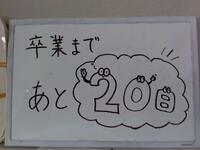 卒業まで
あと20日